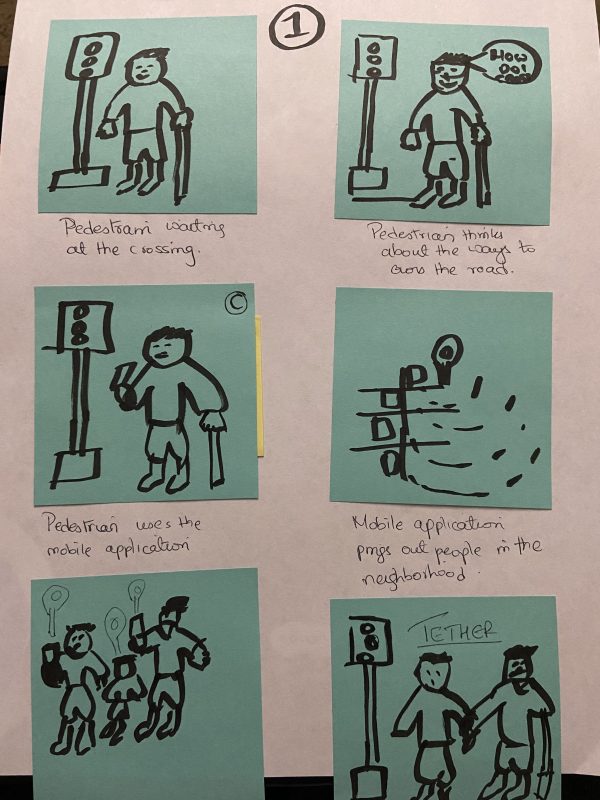 1
How
do I
Pedestrain waiting
at the crossing.
Pedestrian thinks
about the ways to
cross the road.
C
Pedestrian uses the
mobile application
Mobile application
pings out people in the
neighborhood.
TETHER